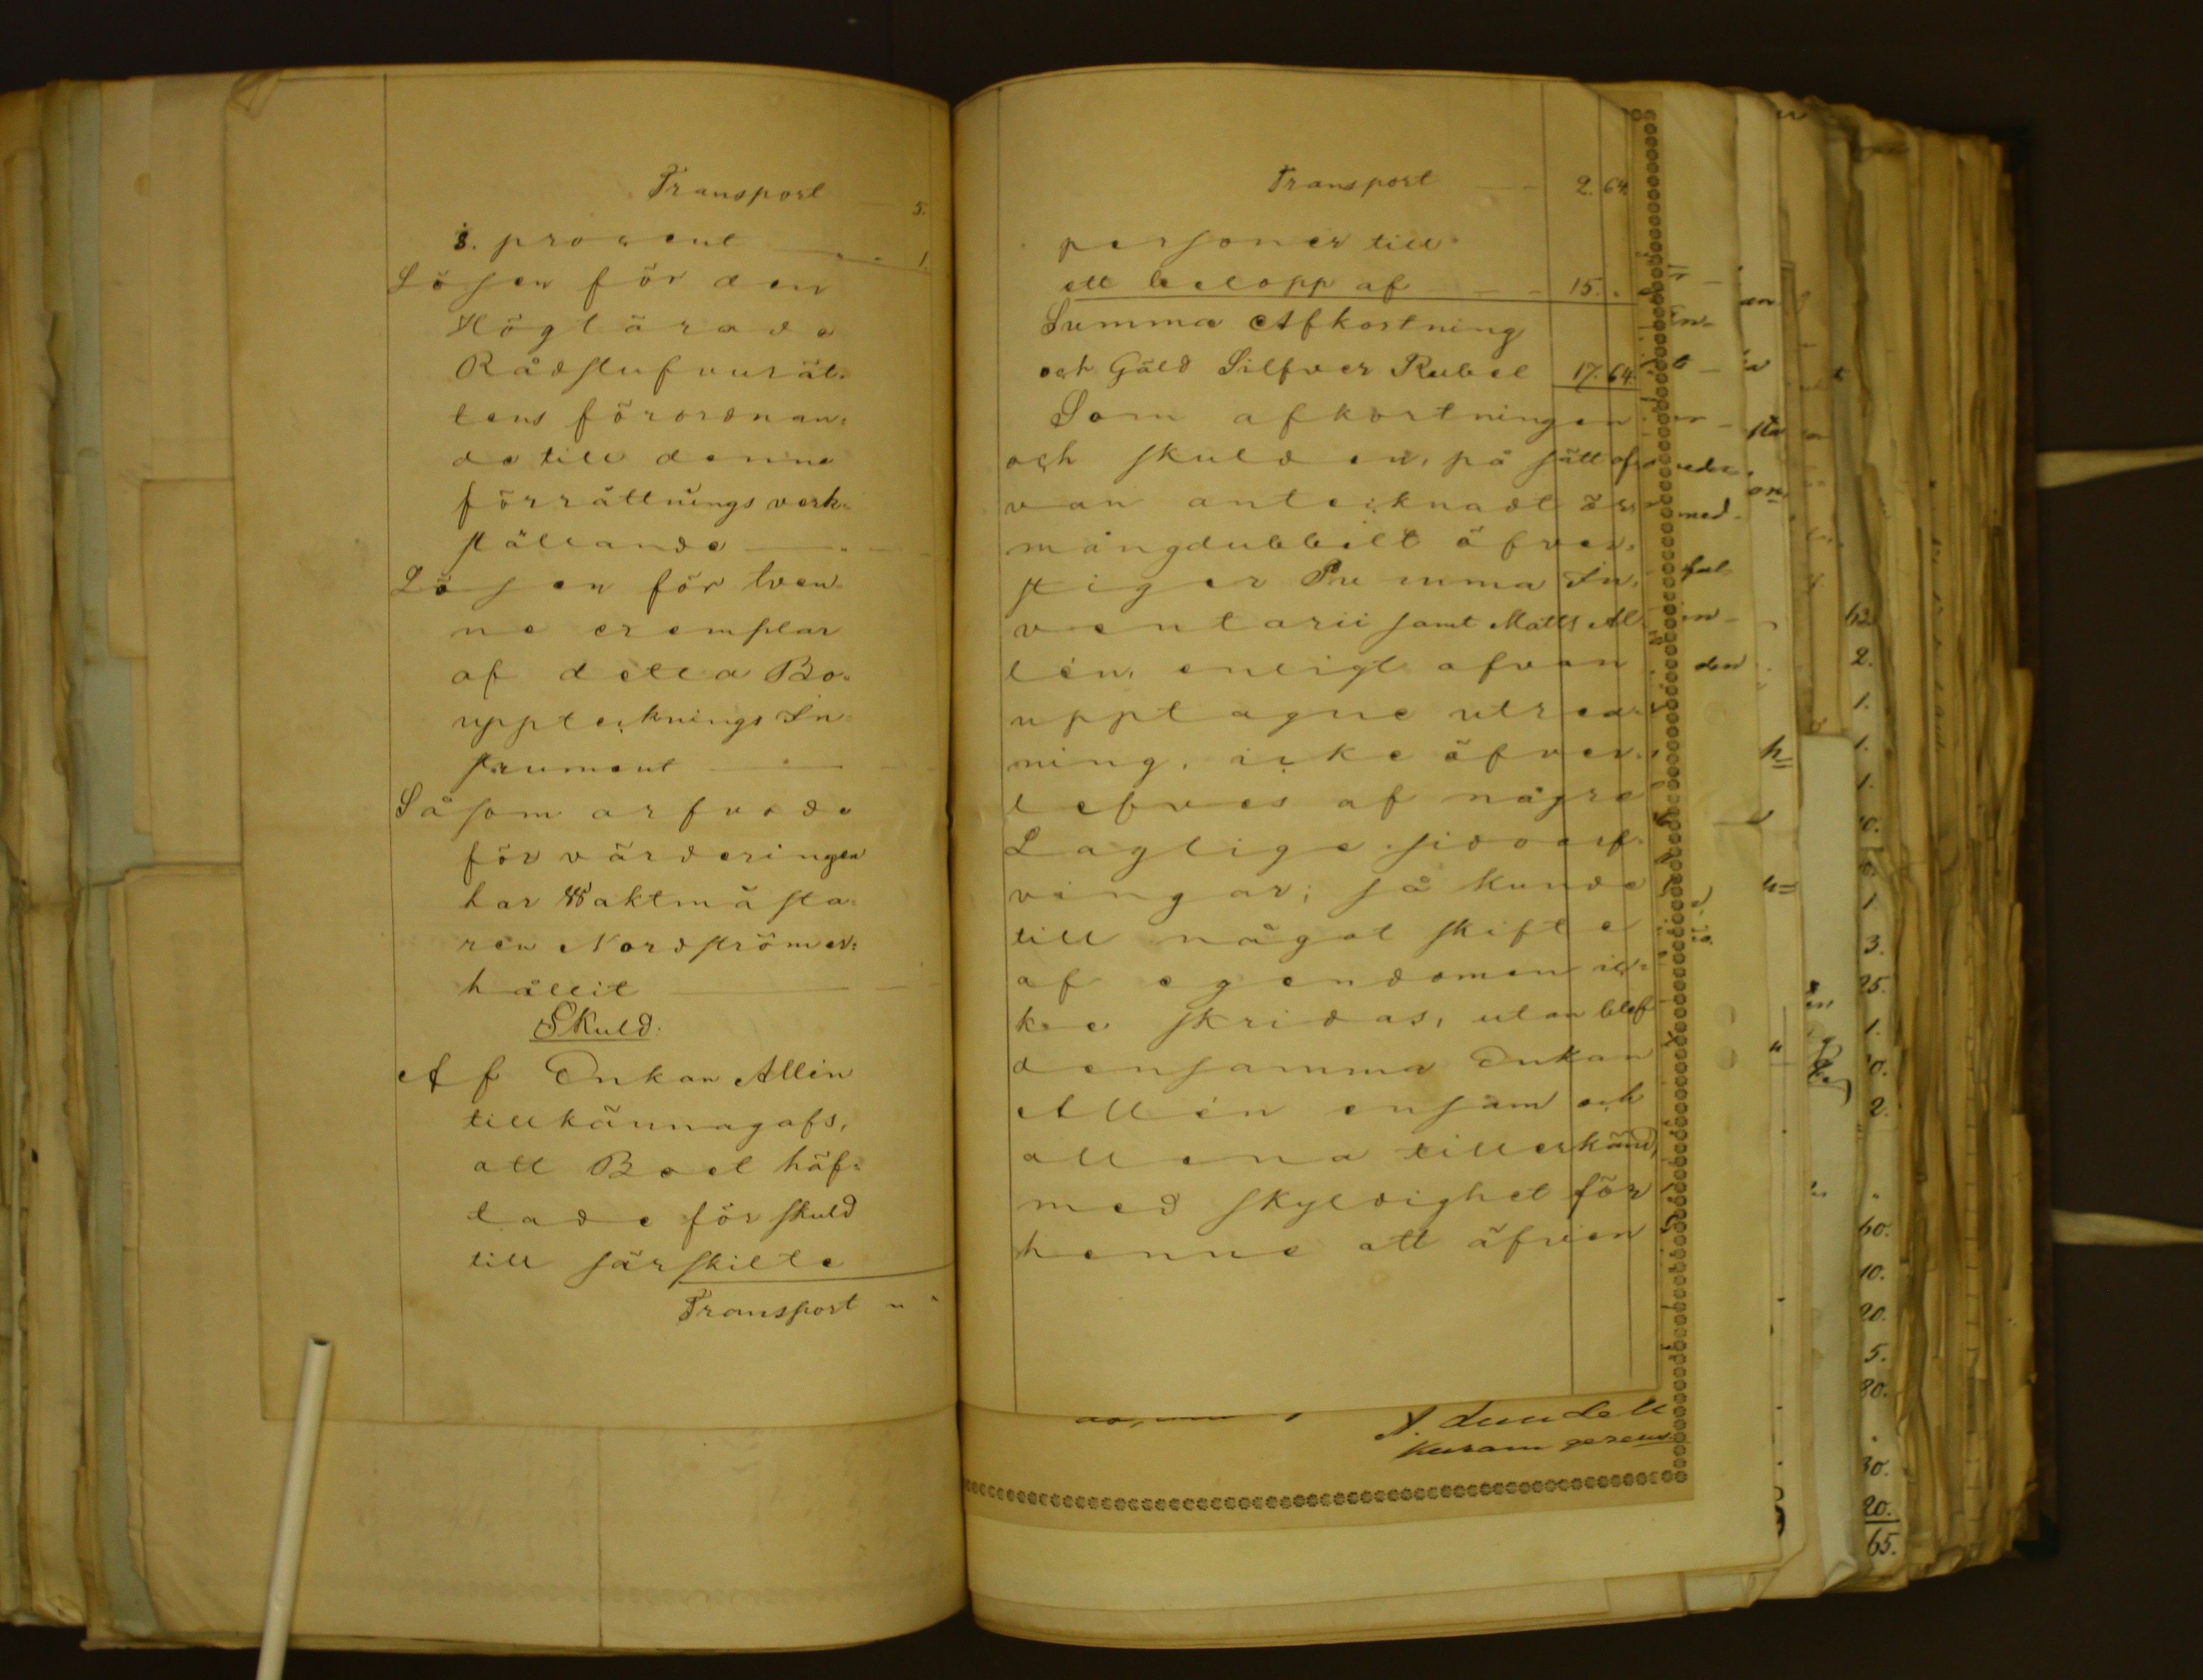 Transport 5.
s. procent 1.
Lösen för den
Höglärade
Rådstufvurät-
tens förordnan-
de till denne
förrättnings verk-
ställande
Lösen för tven-
ne exemplar
af detta Bo-
uppteckningsIn-
strument
Såsom arfvode
för värderingen
har Waktmästa-
ren Nordström er-
hållit
Skuld.
Af Enkan Allén
tillkännagafs,
att Boet häf-
tade för skuld
till särskilte
Transport
Transport 2. 64.
personer till
ett belopp af 15.
Summa Afkortning
och Gäld Silfver Rubel 17. 64.
Som afkortningen
och skulden, på sätt of-
van antecknadt är,
mångdubbelt öfver-
stiger Summa In-
ventarii samt Matts Al-
lén, enligt ofvan
upptagne utred-
ning, icke öfver-
lefves af några
Laglige sidoarf-
vingar; så kunde
till något skifte
af egendomen ic-
ke skridas, utan blef
densamma Enkan
Allén ensam och
allena tillerkänd,
med skyldighet för
henne att äfven
A. Lundell
Curam gerens.
med-
den
62.
2.
1.
1.
1.
1
3.
25.
1.
2.
60.
10.
20.
5.
20.
65.